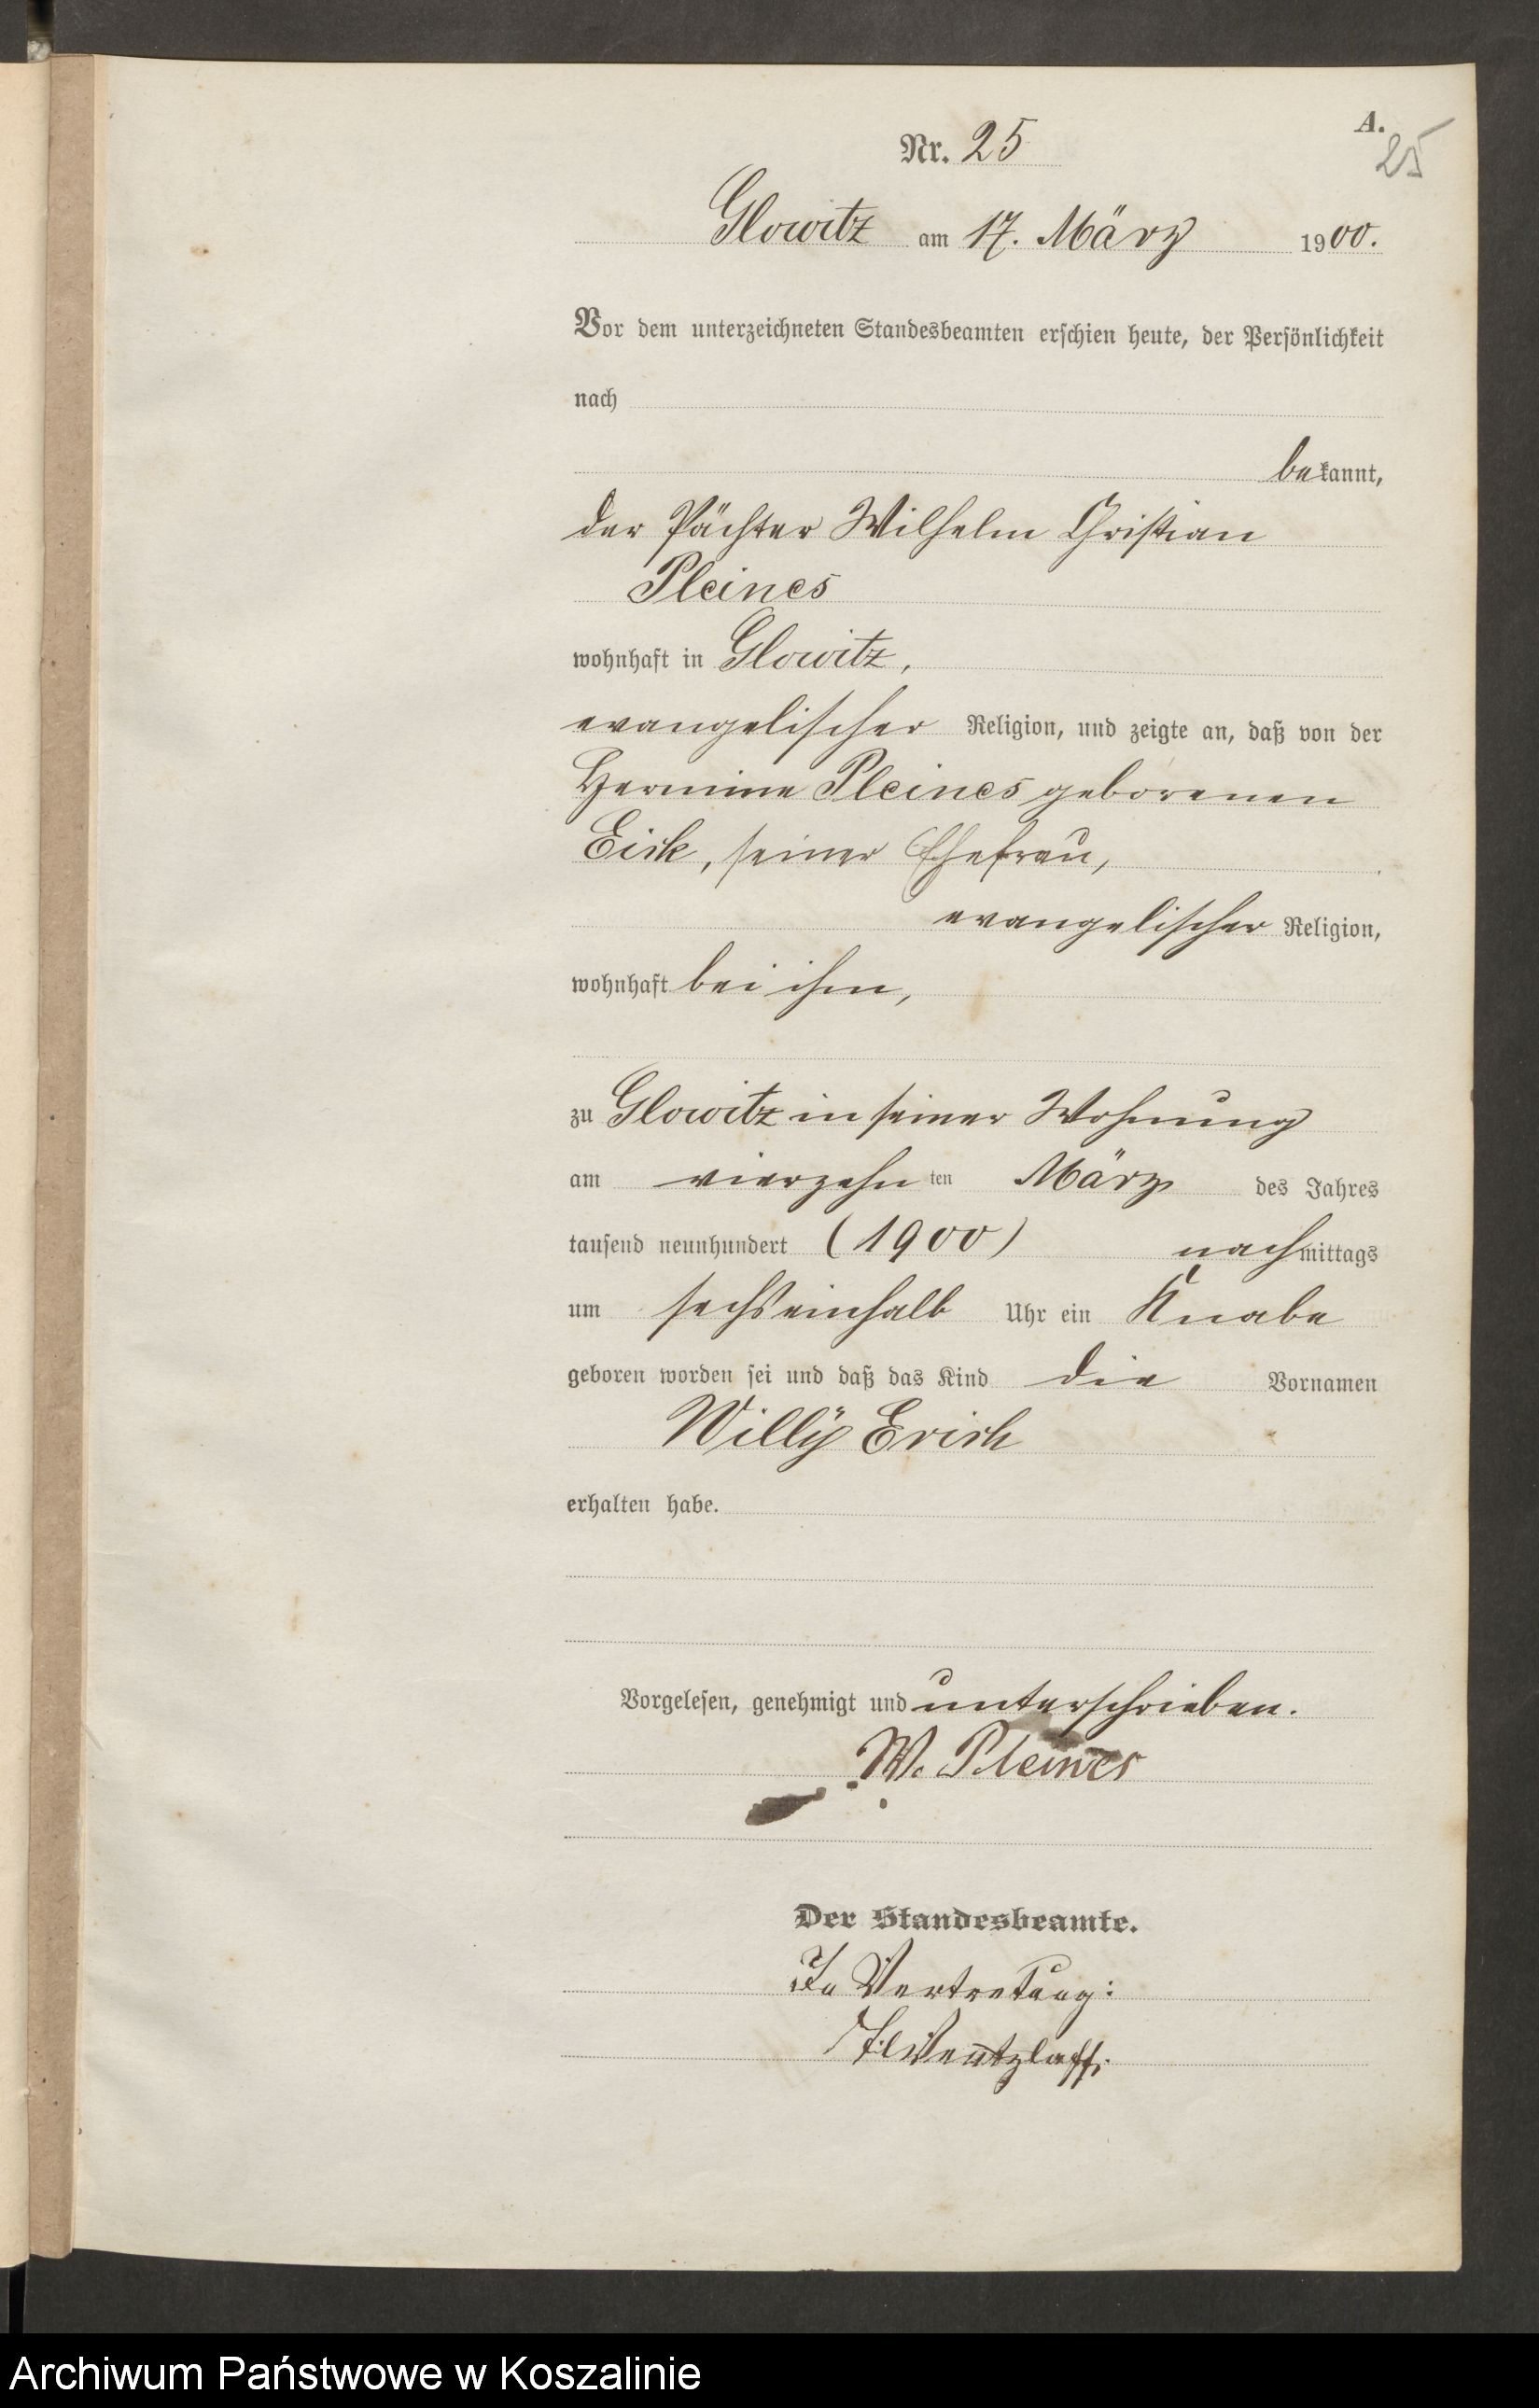 A.
Nr. 25
25
Glowitz am 17. März 1900.
Vor dem unterzeichneten Standesbeamten erschien heute, der Persönlichkeit
nach
bekannt,
der Pächter Wilhelm Christian
Pleines
wohnhaft in Glowitz,
evangelischer Religion, und zeigte an, daß von der
Hermine Pleines geborenen
Eick, seiner Ehefrau,
evangelischer Religion,
wohnhaft bei ihm,
zu Glowitz in seiner Wohnung
am vierzehnten März des Jahres
tausend neunhundert (1900) nachmittags
um sechseinhalb Uhr ein Knabe
geboren worden sei und daß das Kind die Vornamen
Willÿ Erich
erhalten habe.
Vorgelesen, genehmigt und unterschrieben.
W. Pleines
Der Standesbeamte.
In Vertretung:
Wentzlaff.
Archiwum Państwowe w Koszalinie